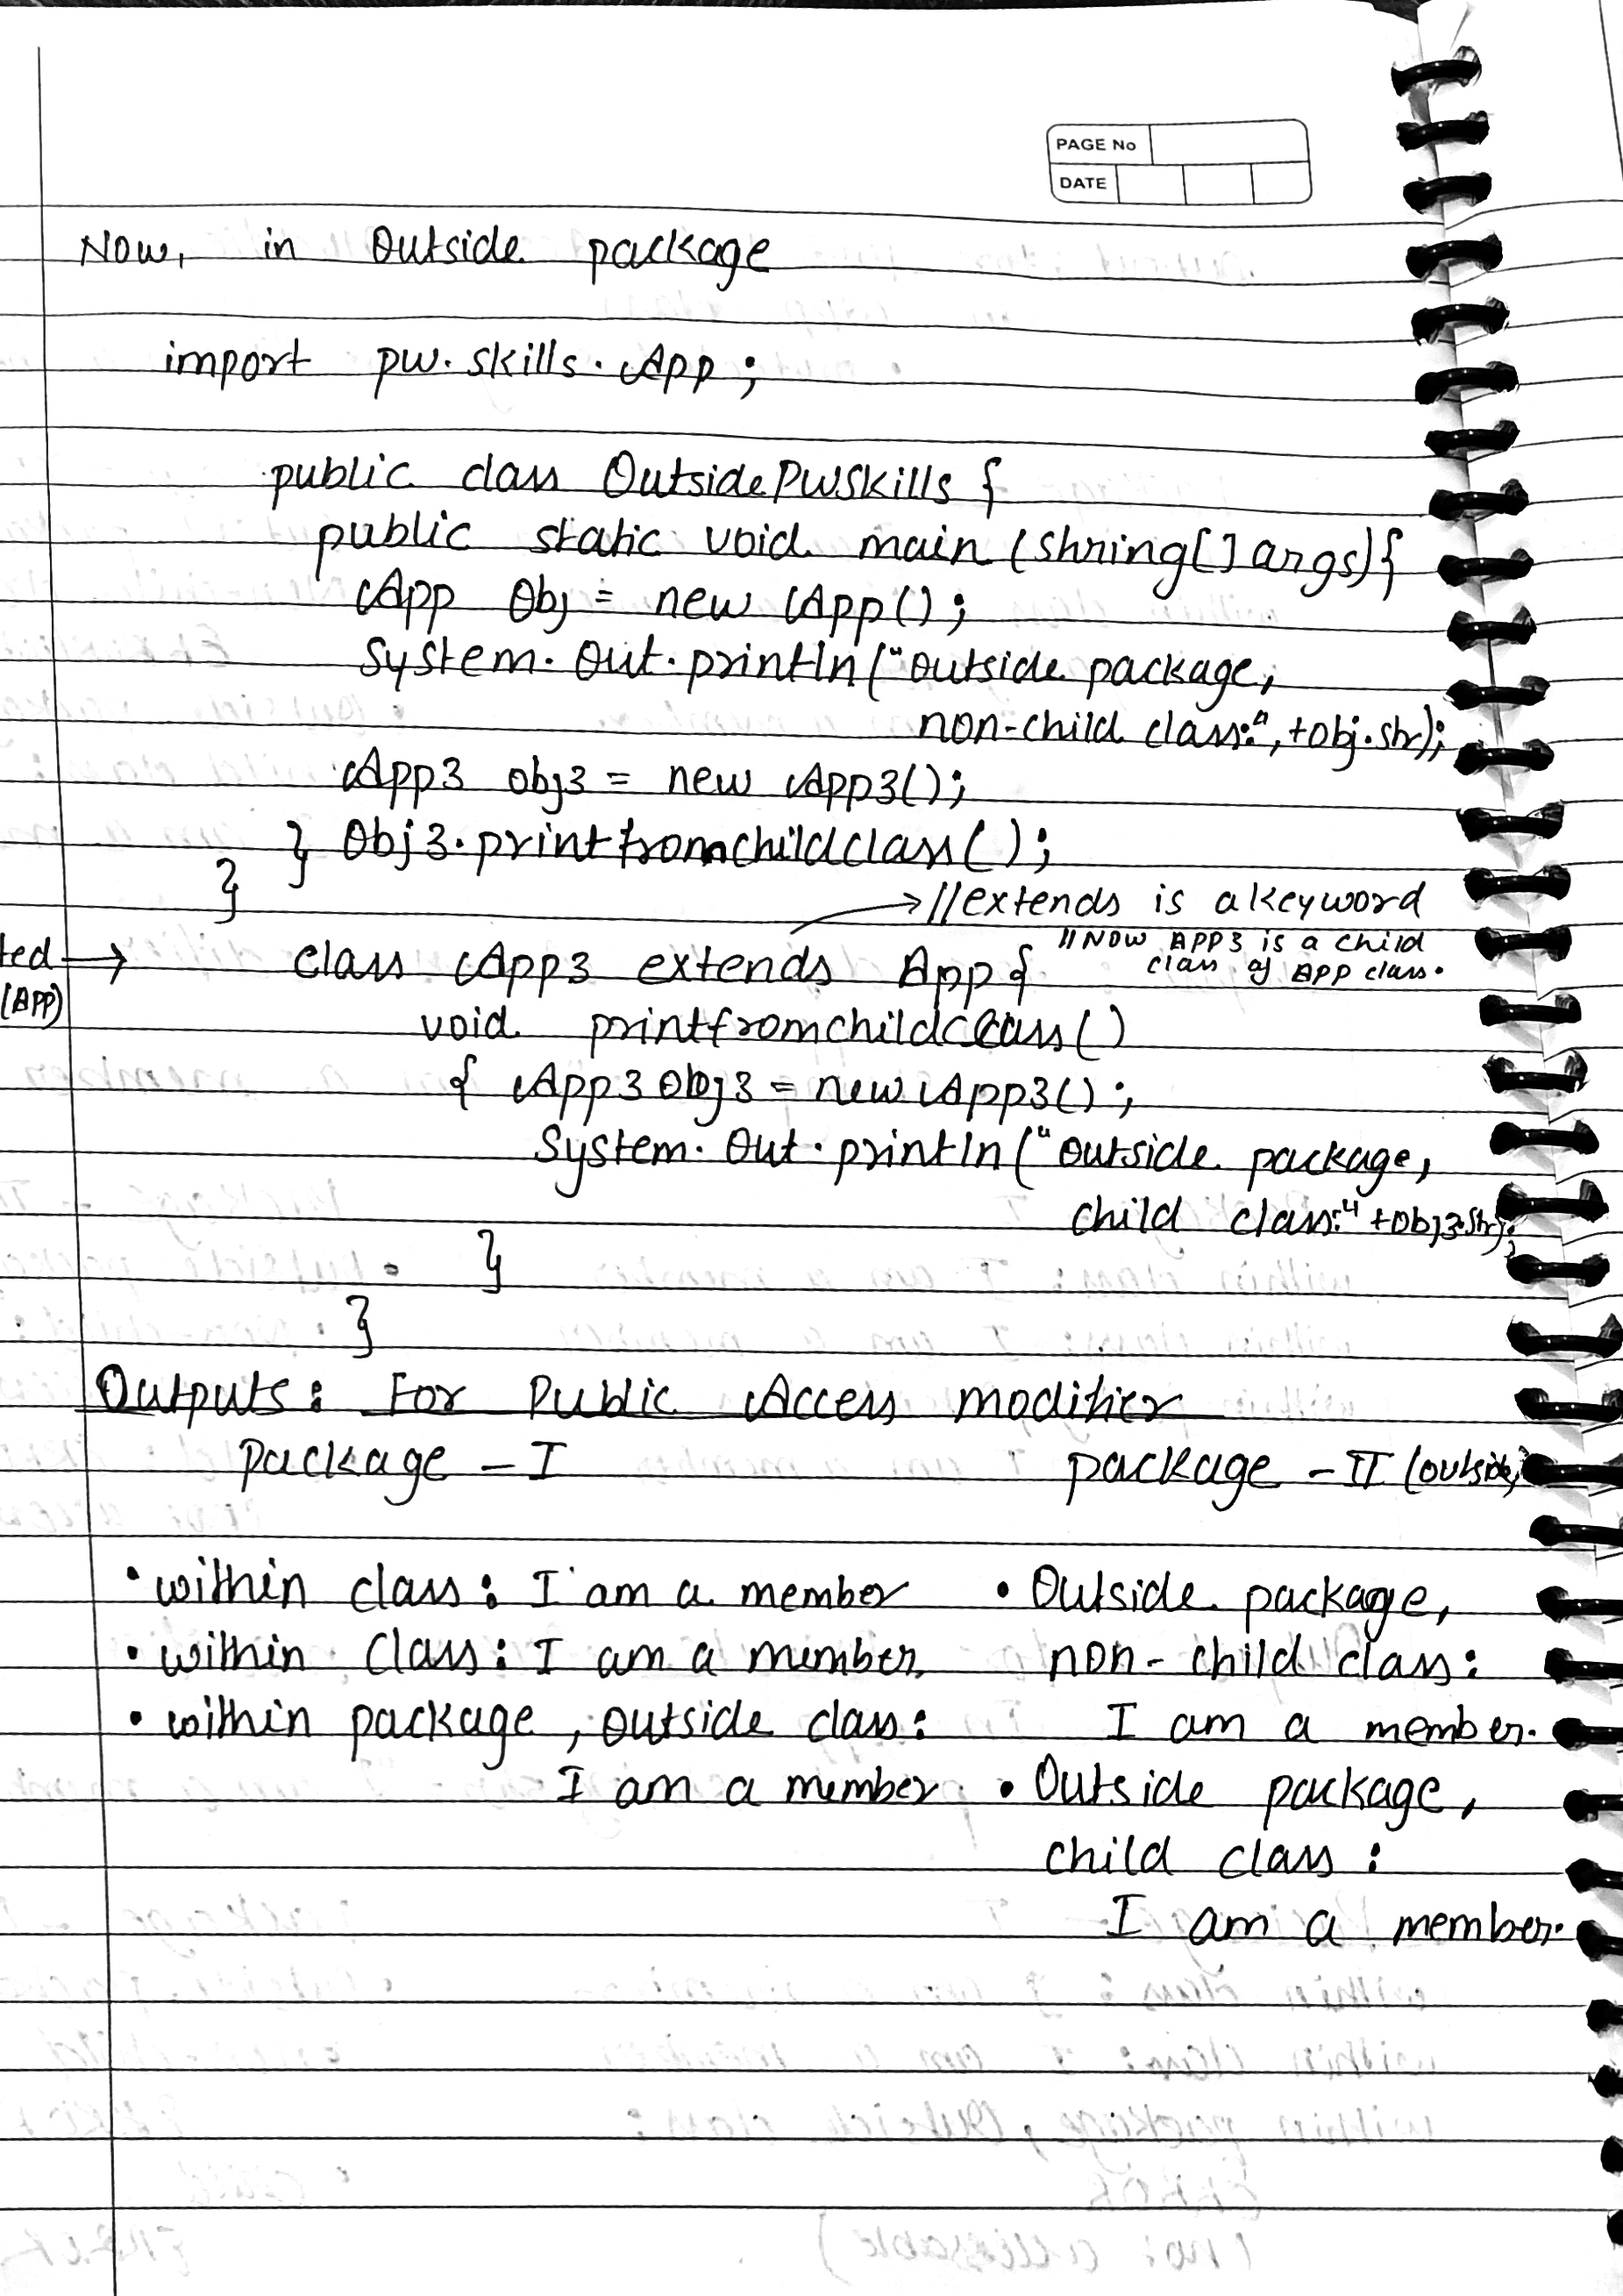 PAGE No
DATE
Now, in Outside package
import pw.skills.App;
public class OutsidePWSkills {
public static void main (shring[] args){
App Obj = new App();
System.Out.println("outside package,
non-child class:",+obj.str);
App3 obj3 = new App3();
} Obj3.printfromchildclass();
}
//extends is a keyword
//NOW APP3 is a child
class of APP class.
ted →
(APP)
class App3 extends App{
void printfromchildclass()
{ App3 obj3 = new App3();
System.Out.println("outside package,
child class:"+obj3.str);
}
}
Outputs: For Public Access modifier
Package - I
package - II (outside)
• within class: I am a member
• within Class: I am a member
• within package, outside class:
I am a member
• Outside package,
non-child class:
I am a member.
• Outside package,
child class:
I am a member.